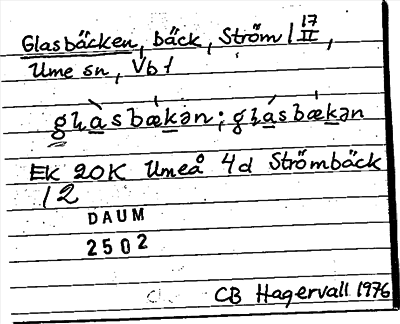 Glasbäcken, bäck, Ström 1 17/II,
Ume sn, Vb t
glàsbækən; glásbækən
EK 20K Umeå 4d Strömbäck
12
DAUM
2502
CB Hagervall 1976